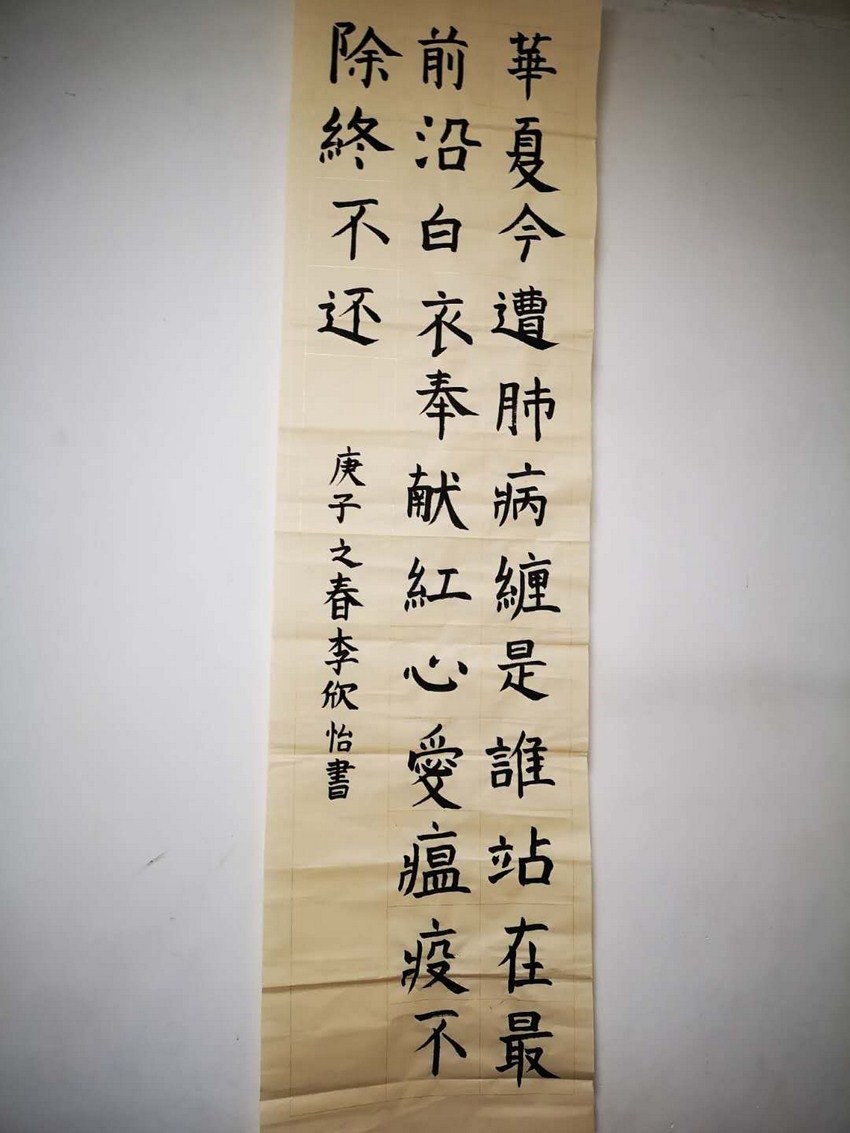 華夏今遭肺病纏是誰站在最
前沿白衣奉献紅心愛瘟疫不
除終不还
庚子之春李欣怡書